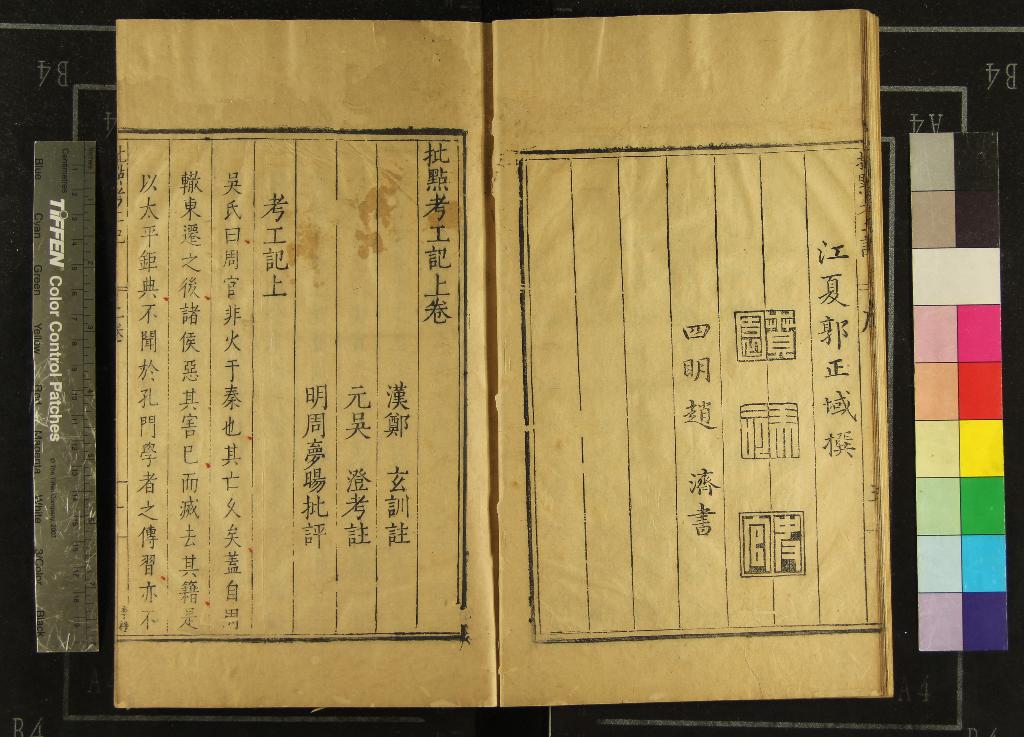 江夏郭正域撰
四明趙 濟書
批點考工記上卷
漢鄭 玄訓註
元吳 澄考註
明周夢暘批評
考工記上
吳氏曰周官非火于秦也其亡久矣蓋自周
轍東遷之後諸侯惡其害巳而滅去其籍是
以太平鉅典不聞於孔門學者之傳習亦不
TIFFEN Color Control Patches
Blue
Cyan
Green
Yellow
Red
Magenta
White
3/Color
Black
Centimetres
B4
B4
A4
A4
A4
B4